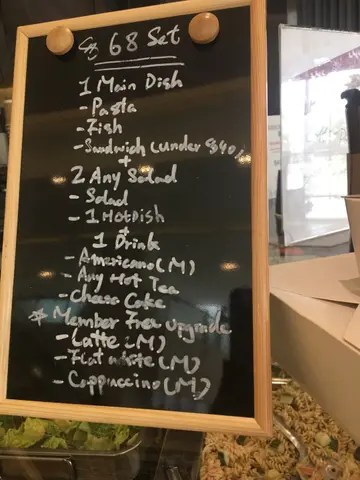 $ 68 Set
1 Main Dish
- Pasta
- Fish
- Sandwich (under $40)
+
2 Any Salad
- Salad
- 1 Hot Dish
+
1 Drink
- Americano (M)
- Any Hot Tea
- Cheese Cake
* Member Free Upgrade
- Latte (M)
- Flat white (M)
- Cappuccino (M)